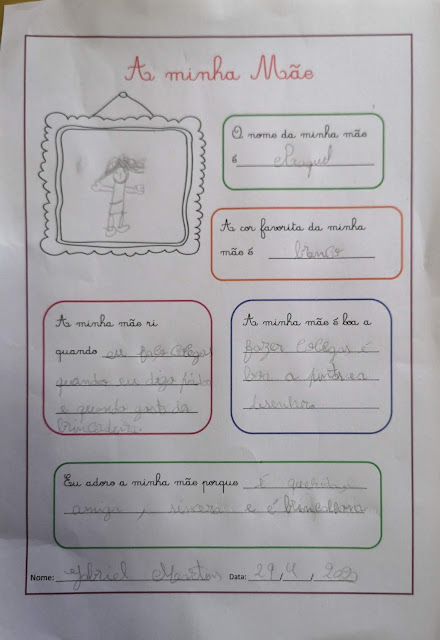 A minha Mãe
O nome da minha mãe
é Raquel
A cor favorita da minha
mãe é branco
A minha mãe ri
quando eu faço
quando eu digo
e quando
brincadeira.
A minha mãe é boa a
fazer é
boa a
desenhar.
Eu adoro a minha mãe porque é querida,
amiga, sincera e é brincalhona
Nome: Gabriel Martins Data: 29, 4,